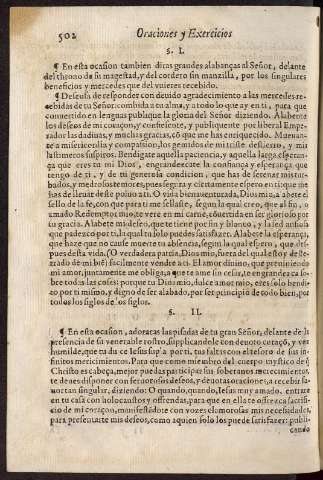 502 Oraciones y Exercicios
§. I.
¶ En esta ocasion tambien diras grandes alabanças al Señor, delante
del throno de su magestad, y del cordero sin manzilla, por los singulares
beneficios y mercedes que del vuieres recebido.
¶ Desseosa de responder con deuido agradecimiento a las mercedes re-
cebidas de tu Señor combida a tu alma, y a todo lo que ay en ti, para que
conuertido en lenguas publique la gloria del Señor diziendo. Alabente
los desseos de mi coraçon, y confiessente, y publiquente por liberal Empe-
rador las dadiuas, y muchas gracias, cõ que me has enriquecido. Mueuante
a misericordia y compassion, los gemidos de mi triste destierro, y mis
lastimeros suspiros. Bendigate aquella paciencia, y aquella larga esperan-
ça que eres tu mi Dios, engrandezcante la confiança y esperança que
tengo de ti, y de tu generosa condicion, que has de serenar mis tur-
bados, y medrosos temores, pues segura y ciertamente espero en ti que me
has de lleuar deste poluo a ti. O vida bienauenturada, Dios mio, alabete el
sello de la fe, con que para ti me sellaste, segun la qual creo, que al fin, o
amado Redemptor mio, te vere en mi carne, cõuertida en ser glorioso por
tu gracia. Alabete mi desseo, que te tiene por fin y blanco, y la sed ansiosa
que padezco por ti, la qual tu solo puedes satisfazer. Alabete la esperança,
que haze que no cause muerte tu absencia, segun la qual espero, que des-
pues desta vida. (O verdadera patria, Dios mio, fuera del qual estoy deste-
rrado de mi bẽ) facilmente vendre a ti. El amor diuino, que preuiniendo
mi amor, juntamente me obliga, a que te ame sin cesar, te engrandezca so-
bre todas las cosas: porque tu Dios mio, dulce amor mio, eres solo bendi-
to por ti mismo, y digno de ser alabado, por ser principio de todo bien, por
todos los siglos de los siglos.
§. II.
¶ En esta ocasion, adoraras las pisadas de tu gran Señor, delante de la
presencia de su venerable rostro, supplicandole con deuoto coraçõ, y
humilde, que tu dulce Iesus supla por ti, tus faltas con el tesoro de sus in-
finitos merecimientos. Para que como miembro del cuerpo mystico de q̃
Christo es cabeça, mejor puedas participar sus soberanos merecimientos,
te deues disponer con feruorosos desseos, y deuotas oraciones, a recebir fa-
uor tan singular, diziendo: O quando, quando, Iesus muy amado, entrare
en tu casa con holocaustos y offrendas, para que en ella te ofrezca sacrifi-
cio de mi coraçon, manifestãdote con vozes clamorosas mis necessidades,
para presentarte mis desseos, como a quien solo los puede satisfazer: publi-
cando